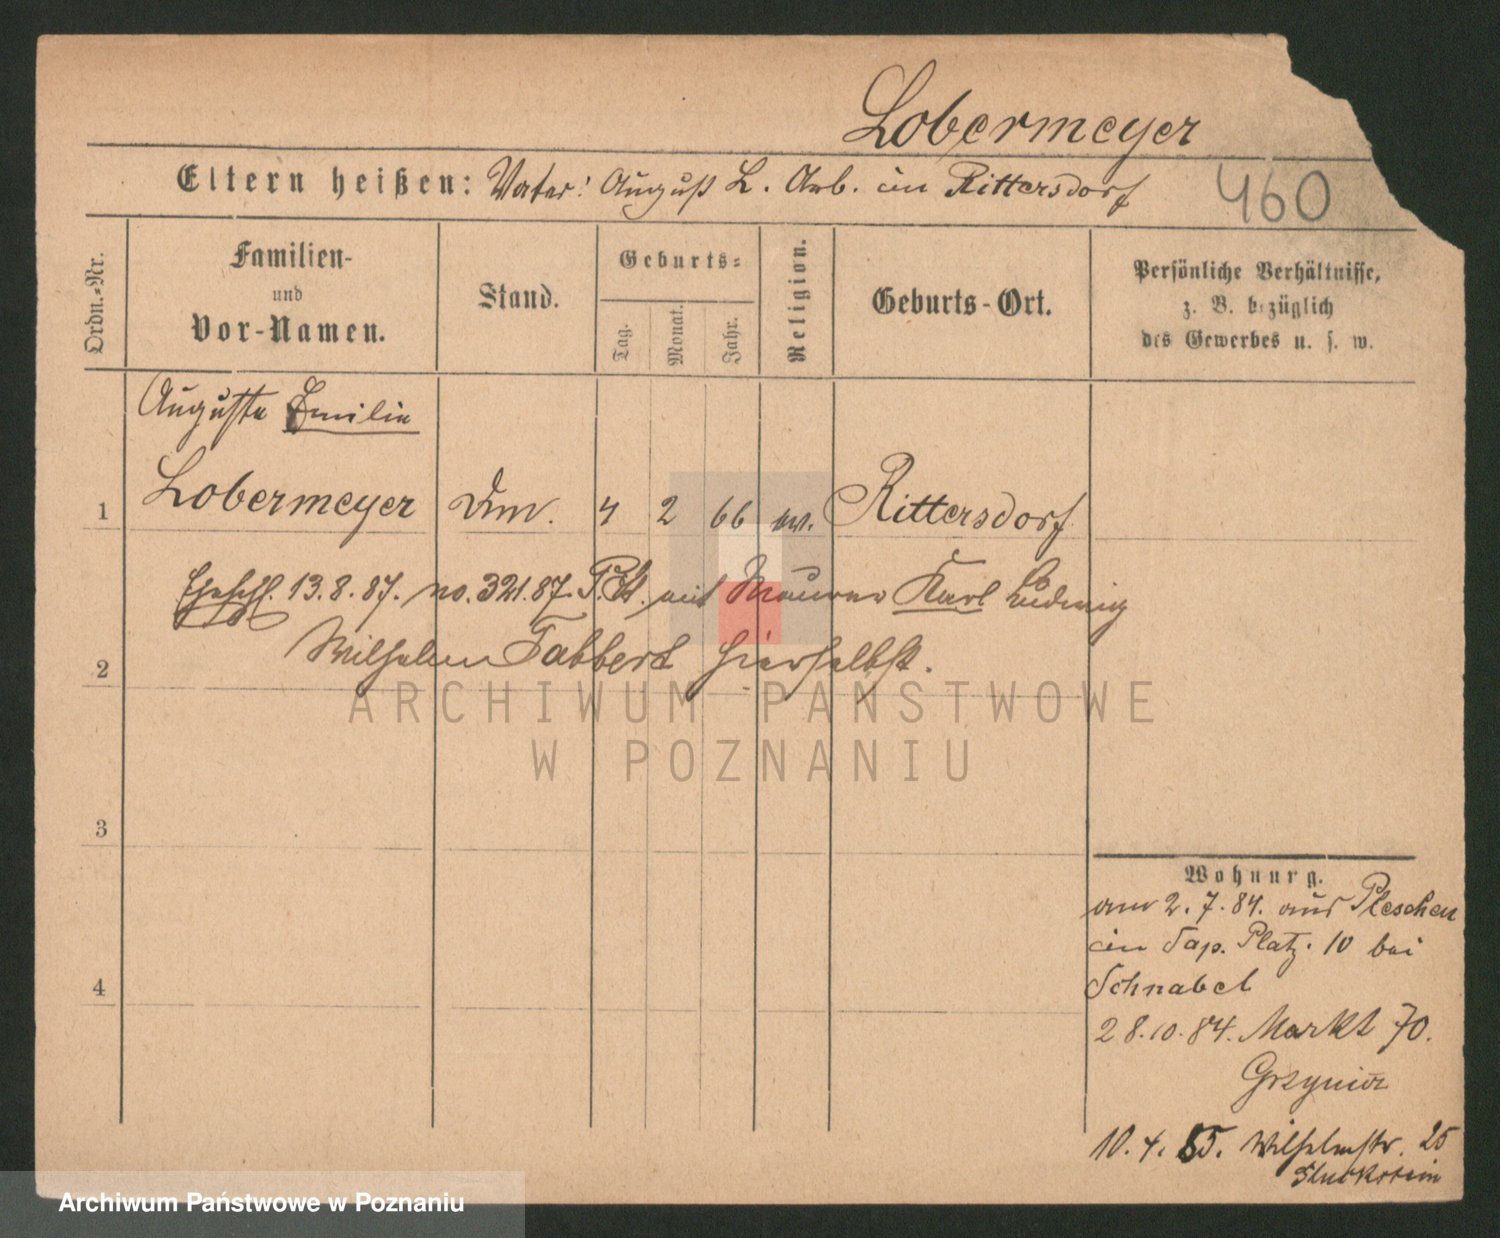 Lobermeyer
Eltern heißen: Vater: August L. Arb. in Rittersdorf 460
Ordn.-Nr.
Familien-
und
Vor-Namen.
Stand.
Geburts-
Tag.
Monat.
Jahr.
Religion.
Geburts-Ort.
Persönliche Verhältnisse,
z. B. bezüglich
des Gewerbes u. s. w.
Auguste Emilie
1 Lobermeyer 4 2 66 ev. Rittersdorf
Eheschl. 13.8.87. no. 321.87. P. St. mit Maurer Karl Ludwig
2 Wilhelm Tabbert hierselbst.
ARCHIWUM PAŃSTWOWE
W POZNANIU
3
4
Wohnung.
am 2.7.84. aus Pleschen
in Sap. Platz. 10 bei
Schnabel
28.10.84. Markt 70.
10.4.85. Wilhelmstr. 25
Archiwum Państwowe w Poznaniu